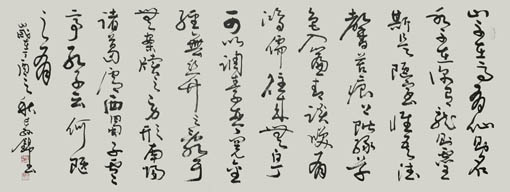 山不在高有仙則名
水不在深有龍則靈
斯是陋室惟吾德
馨苔痕上階綠草
色入簾青談笑有
鴻儒往來無白丁
可以調素琴閱金
經無絲竹之亂耳
無案牘之勞形南陽
諸葛廬西蜀子雲
亭孔子云何陋
之有